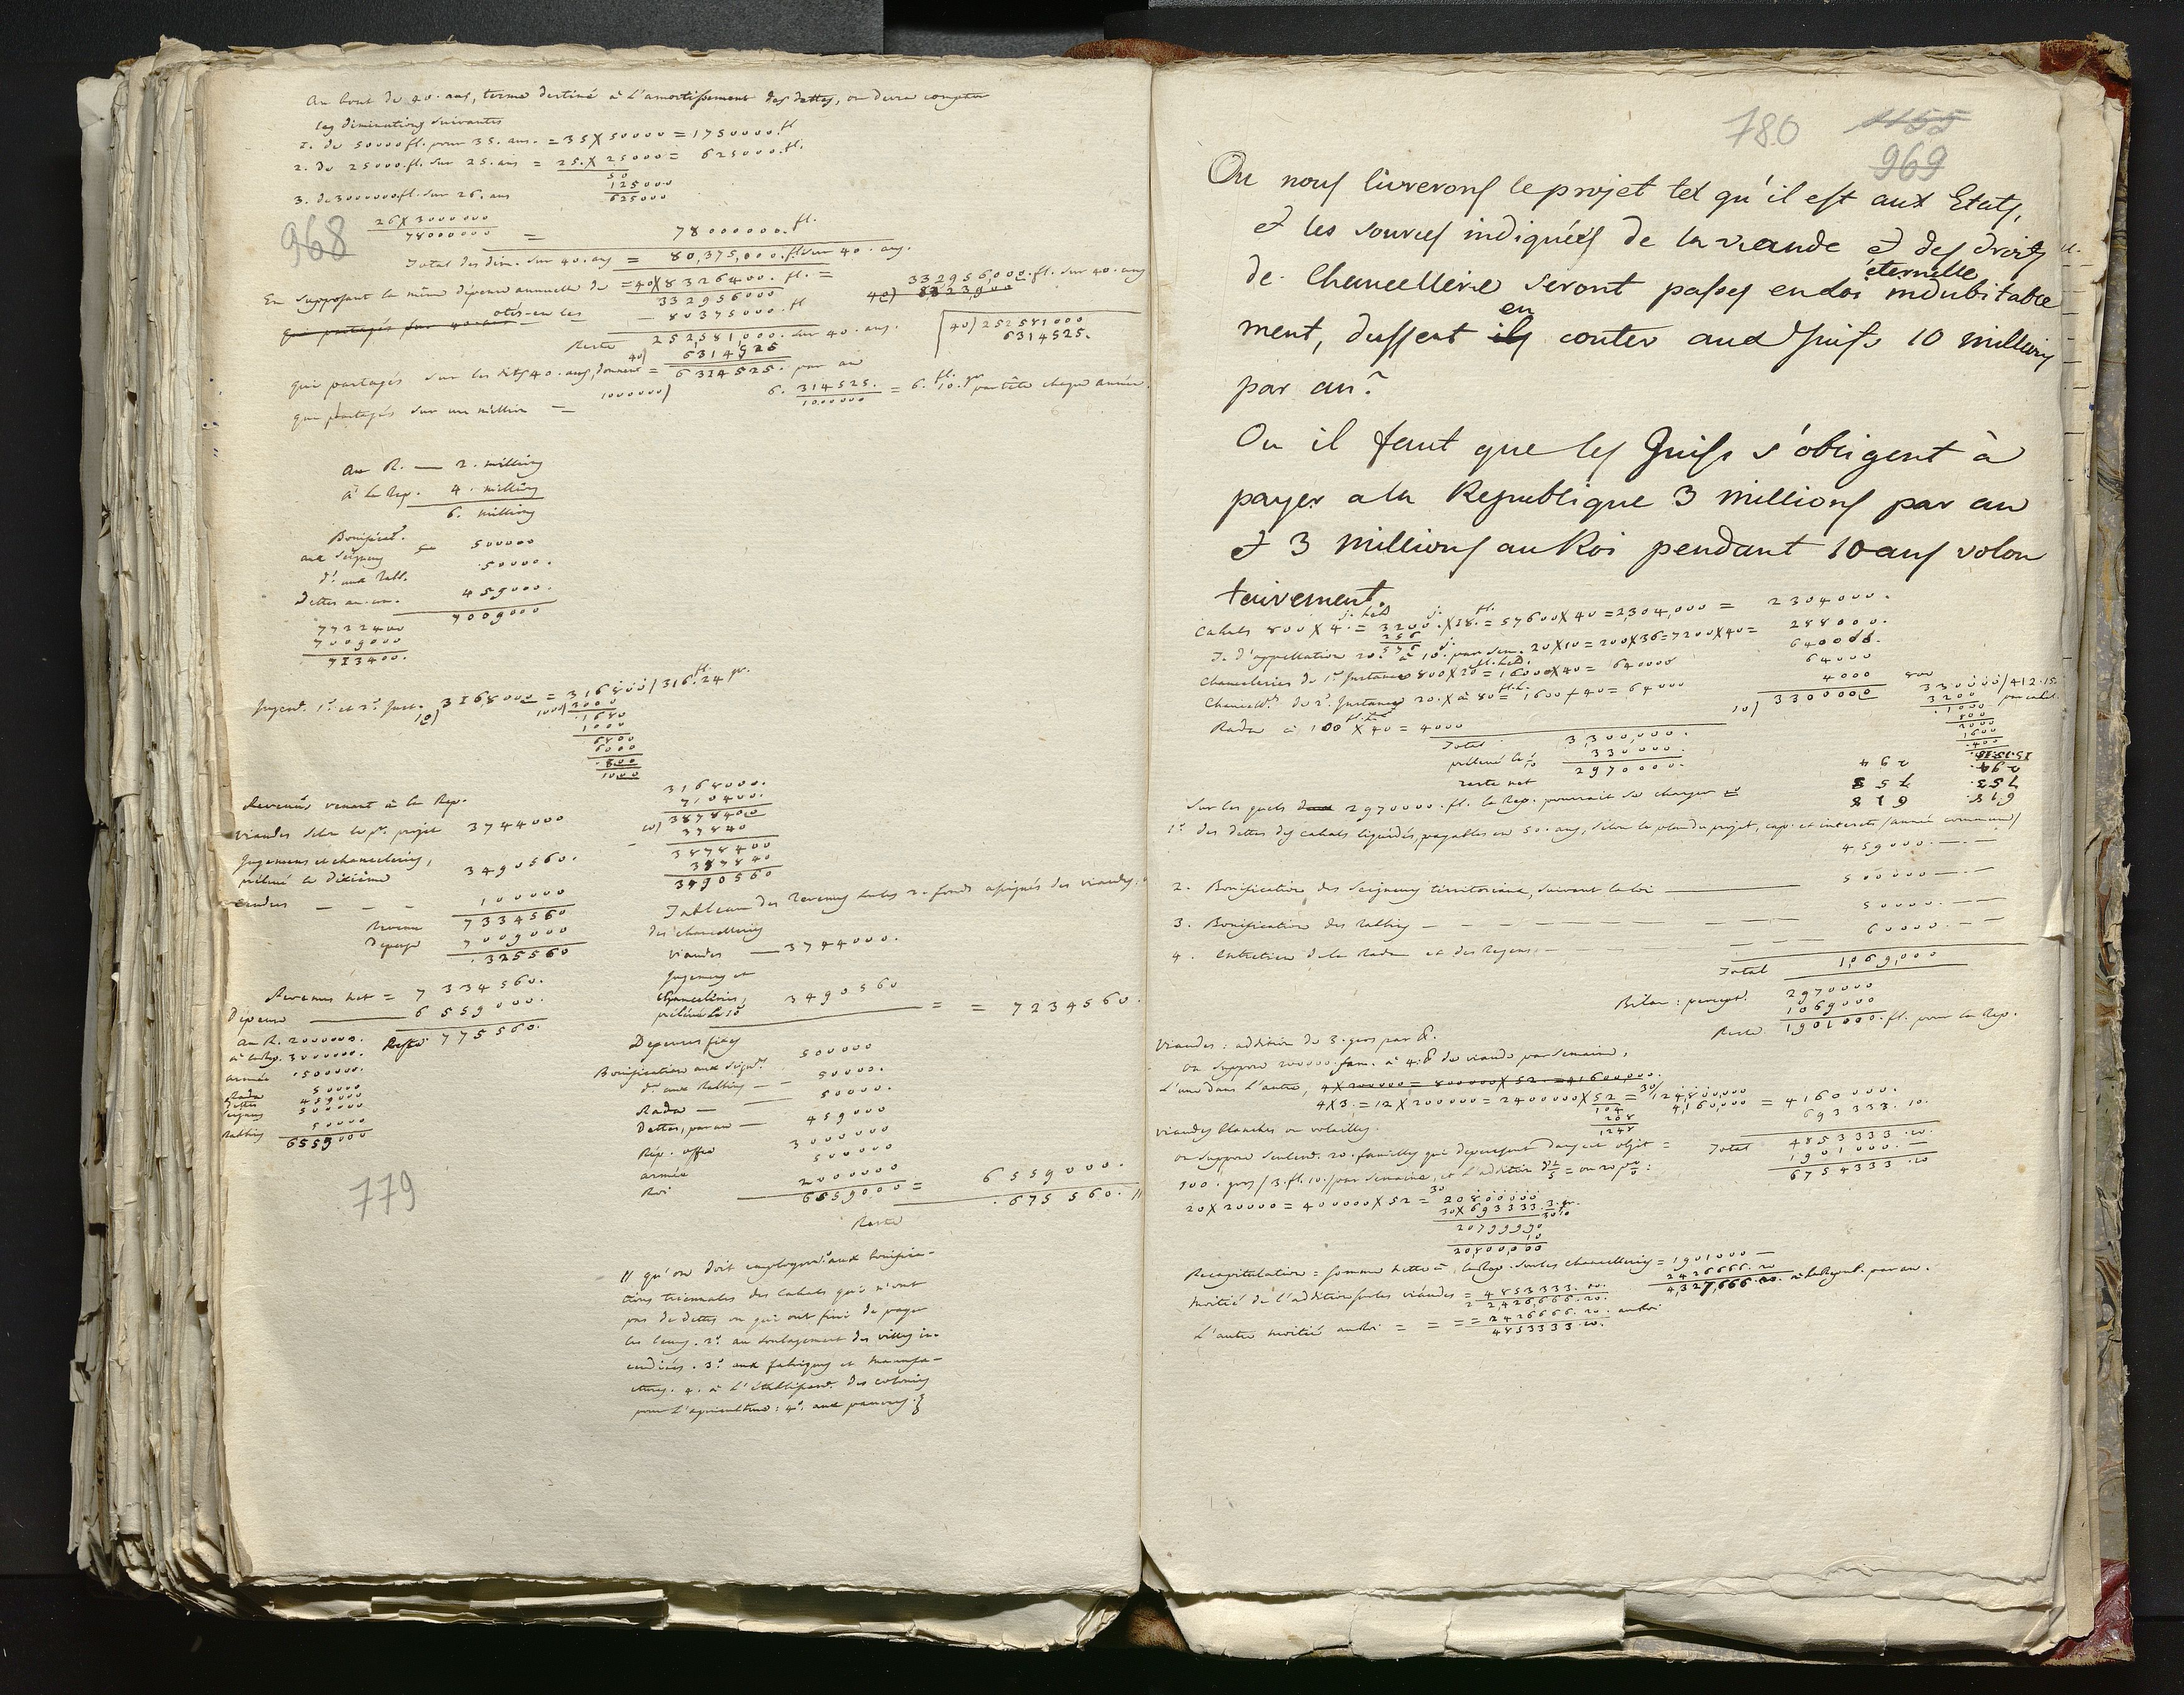 Au bout de 40. ans, terme destiné à l'amortissement des dettes, on devra compter
les diminutions suivantes
1. de 50000 fl. pour 35. ans. = 35 X 50000 = 1750000. fl
2. de 25000. fl. sur 25. ans = 25. X 25000 = 625000. fl.
50
125000
625000
3. de 3000000 fl. sur 26. ans
26 X 3000000
78000000 = 78000000. fl.
968
Total des dim. sur 40. ans = 80,375,000. fl. sur 40. ans.
En supposant la même dépense annuelle de = 40 X 8326400. fl. = 332956,000. fl. sur 40. ans
332956000
qui partagés sur 40. ans ôtés-en les — 80375000. fl
Reste 252,581,000. sur 40. ans.
40) 252581000
6314525.
40) 6314525
qui partagés sur les dits 40. ans, donnent = 6314525. par an
que partagés sur un million = 1000000) 6. 314525. = 6. fl. 10. gr par tête chaque année.
1000000
Au R. — 2. millions
à la Rep. 4. millions
6. millions
Bonificat.
aux Seigneurs 500000
d.° aux Rabb. 50000.
Dettes an. 459000.
7009000
7722400
7009000
713400.
Jugem. 1.° et 2.° Inst. 3168000 = 316800 / 316. fl. 24 gr.
10) 1000)
1680
1000
6800
6000
800
1000
Revenus venant à la Rep.
Viandes selon le pr. projet 3744000
Jugemens et chancelleries,
prélevé le dixième 3490560.
— — — 100000
Revenu 7334560
Depense 7009000
. 325560
3168000.
710400.
3878400
10) 37840
3878400
387840
3490560
Revenus net = 7334560.
Dépense — 6559000.
Reste 775560.
Au R. 2000000.
à la Rep. 3000000.
armée 500000.
Rada 50000
Dettes 459000
Seigneurs 500000
Rabbins 50000
6559000
779
Tableau des Revenus sur les 2. fonds assignés des viandes,
des chancelleries
Viandes — 3744000.
Jugemens et
chancelleries,
prélevé le 10° 3490560 = = 7234560.
Depenses fixes
Bonification aux Sign.rs 500000
d.° aux Rabbins — — 50000.
Rada — — 50000.
Dettes, par an — 459000
Rép. offre 3000000
armée 500000
Roi 2000000
6559000 = 6559000.
Reste . 675560. //
// qu'on doit employer 1.° aux bonifica-
tions triennales des Cahals qui n'ont
pas de dettes ou qui ont fini de payer
les leurs. 2.° au soulagement des villes in-
cendiées. 3.° aux fabriques et manufa-
ctures. 4. à l'établissem. des colonies
pour l'agriculture : 4.° aux pauvres.
780 1155
969
Ou nous livrerons le projet tel qu'il est aux Etats,
et les sources indiquées de la viande et des droits
de Chancellerie seront passés en loi éternelle indubitable
ment, dussent ils en couter aux Juifs 10 millions
par an?
Ou il faut que les Juifs s'obligent à
payer a la Republique 3 millions par an
et 3 millions au Roi pendant 10 ans volon
tairement.
Cahals 800 X 4. = 3200. X 18. = 57600 X 40 = 2,304,000 = 2304000.
256
576
J. d'appellation 20. à 10. par sem. 20 X 10 = 200 X 36 = 7200 X 40 = 288000.
Chancelleries de 1.e Instance 800 X 20 = 16000 X 40 = 640000 640000.
Chancell.s de 2.e Instance 20. X à 80 = 1600 X 40 = 64000 64000
Rada à 100 X 40 = 4000 4000
10) 3300000
800 330000 / 412.15.
3200 par cahal.
.1000
800
2000
1600
.400
Total 3,300,000.
prélevé le 1/10 330000.
reste net 2970000.
294
753
618
Sur les quels 2970000. fl. la Rep. pourrait se charger
1.° des dettes des cahals liquidés, payables en 50. ans, selon le plan du projet, cap. et interets (année commune)
459000. — —
2. Bonification des Seigneurs territoriaux, suivant la loi — 500000 — —
3. Bonification des Rabbins — — — — 50000. — —
4. Entretien de la Rada et des Regens. — — — 60000. — —
Total 1,069,000
Bilan : percept. 2970000
1069000
Reste 1901000. fl. pour la Rep.
Viandes : addition de 3. gros par ℔.
on suppose 200000. fam. à 4. ℔ de viande par semaine,
l'une dans l'autre, 4 X 200000 = 800000 X 52. = 41600000.
4 X 3. = 12 X 200000 = 2400000 X 52 = 30/ 124,800,000
4,160,000 = 4160000.
104
208
1248
Viandes blanches ou volailles. 693333. 10.
on suppose seulem. 20. familles qui depensent dans cet objet = Total 4853333. 10.
1901000. —
6754333. 10
100. gros / 3. fl. 10. / par semaine, et l'addition d' 1/5 = ou 20 p% :
20 X 20000 = 400000 X 52 = 30 20800000
30 X 693333. 3. gr.
20799990
10
20,800,000
Recapitulation = somme nette à la Rep. sur les chancelleries = 1901000 —
2426666. 20
4,327,666. 20. à la Republ. par an.
Moitié de l'addition sur les viandes = 4853333. 10.
2 2,426,666. 20.
L'autre moitié au Roi = = = = 2426666. 20. au Roi
4853333. 10.